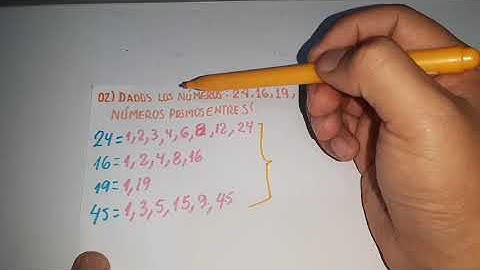 02) DADOS LOS NÚMEROS: 24,16,19,
NÚMEROS PRIMOS ENTRE SÍ
24=1,2,3,4,6,8,12,24
16=1,2,4,8,16
19=1,19
45=1,3,5,15,9,45